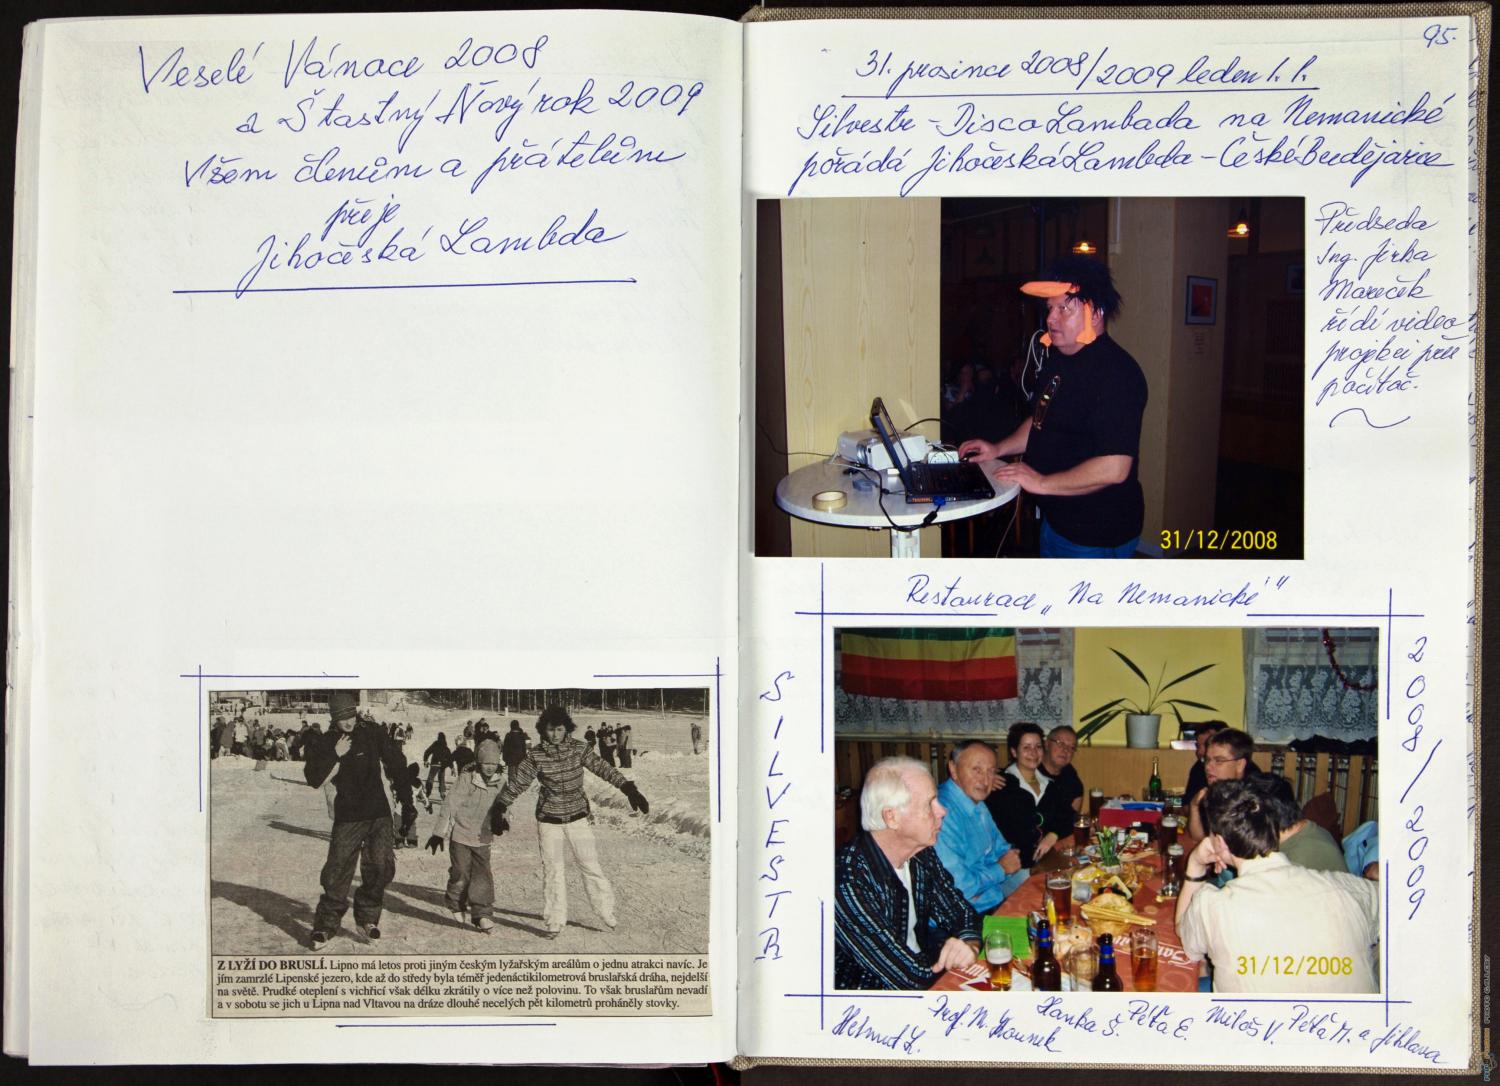 Veselé Vánoce 2008
a Štastný Nový rok 2009
Všem členům a přátelům
přeje
Jihočeská Lambda
Z LYŽÍ DO BRUSLÍ. Lipno má letos proti jiným českým lyžařským areálům o jednu atrakci navíc. Je
jím zamrzlé Lipenské jezero, kde až do středy byla téměř jedenáctikilometrová bruslařská dráha, nejdelší
na světě. Prudké oteplení s vichřicí však délku zkrátily o více než polovinu. To však bruslařům nevadí
a v sobotu se jich u Lipna nad Vltavou na dráze dlouhé necelých pět kilometrů proháněly stovky.
95.
31. prosince 2008/2009 leden 1. 1.
Silvestr - Disco Lambada na Nemanické
pořádá Jihočeská Lambda - České Budějovice
Předseda
Ing. Jirka
Mareček
řídí video
projekci přes
počítač.
31/12/2008
Restaurace „Na Nemanické"
SILVESTR
2008/2009
31/12/2008
Helmut L. Prof. M. Kounek Hanka Š. Péťa E. Miloš V. Péťa M. a Jihlava